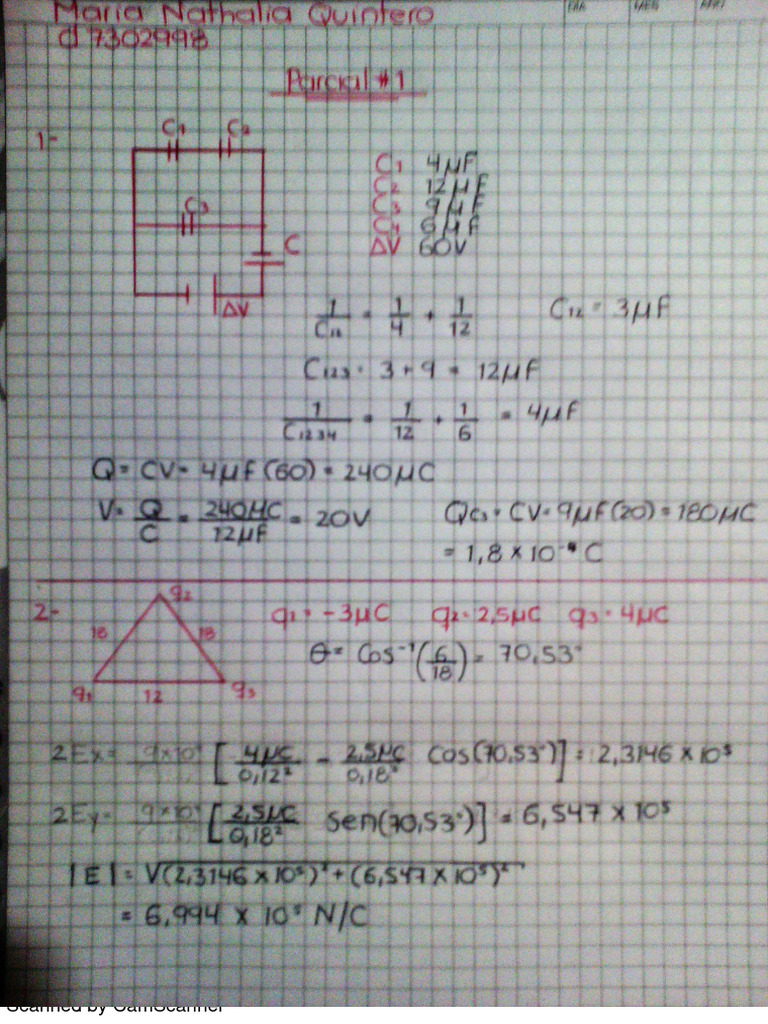 Maria Nathalia Quintero
d 7302998
DIA MES AÑO
Parcial #1
1-
C1 C2
C3
C
ΔV
C1 4μF
C2 12μF
C3 9μF
C4 6μF
ΔV 60V
1/C12 = 1/4 + 1/12 C12 = 3μF
C123 = 3+9 = 12μF
1/C1234 = 1/12 + 1/6 = 4μF
Q = CV = 4μF(60) = 240μC
V = Q/C = 240μC/12μF = 20V QC3 = CV = 9μF(20) = 180μC
= 1,8 x 10⁻⁴ C
2-
q2
18 18
q1 12 q3
q1 = -3μC q2 = 2,5μC q3 = 4μC
θ = Cos⁻¹(6/18) = 70,53°
ΣEx = 9x10⁹ [4μC/0,12² - 2,5μC/0,18² Cos(70,53°)] = 2,3146 x 10⁵
ΣEy = 9x10⁹ [2,5μC/0,18² Sen(70,53°)] = 6,547 x 10⁵
|E| = √(2,3146 x 10⁵)² + (6,547 x 10⁵)²
= 6,994 x 10⁵ N/C
Scanned by CamScanner